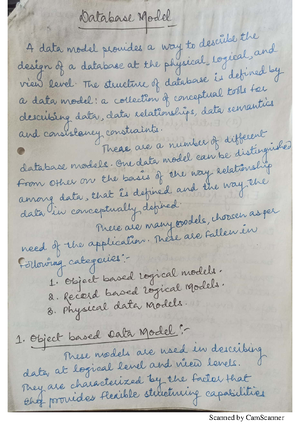 Database Model
A data model provides a way to describe the
design of a database at the physical, logical, and
view level. The structure of database is defined by
a data model: a collection of conceptual tolls for
describing data, data relationships, data semantics
and consistency constraints.
There are a number of different
database models. One data model can be distinguished
from other on the basis of the way relationship
among data, that is defined and the way the
data in conceptually defined.
There are many models, choosen as per
need of the application. These are fallen in
following categories:-
1. Object based logical models.
2. Record based logical Models.
3. Physical data Models.
1. Object based Data Model :-
These models are used in describing
data at logical level and view levels.
They are characterized by the factor that
they provides flexible structuring capabilities
Scanned by CamScanner